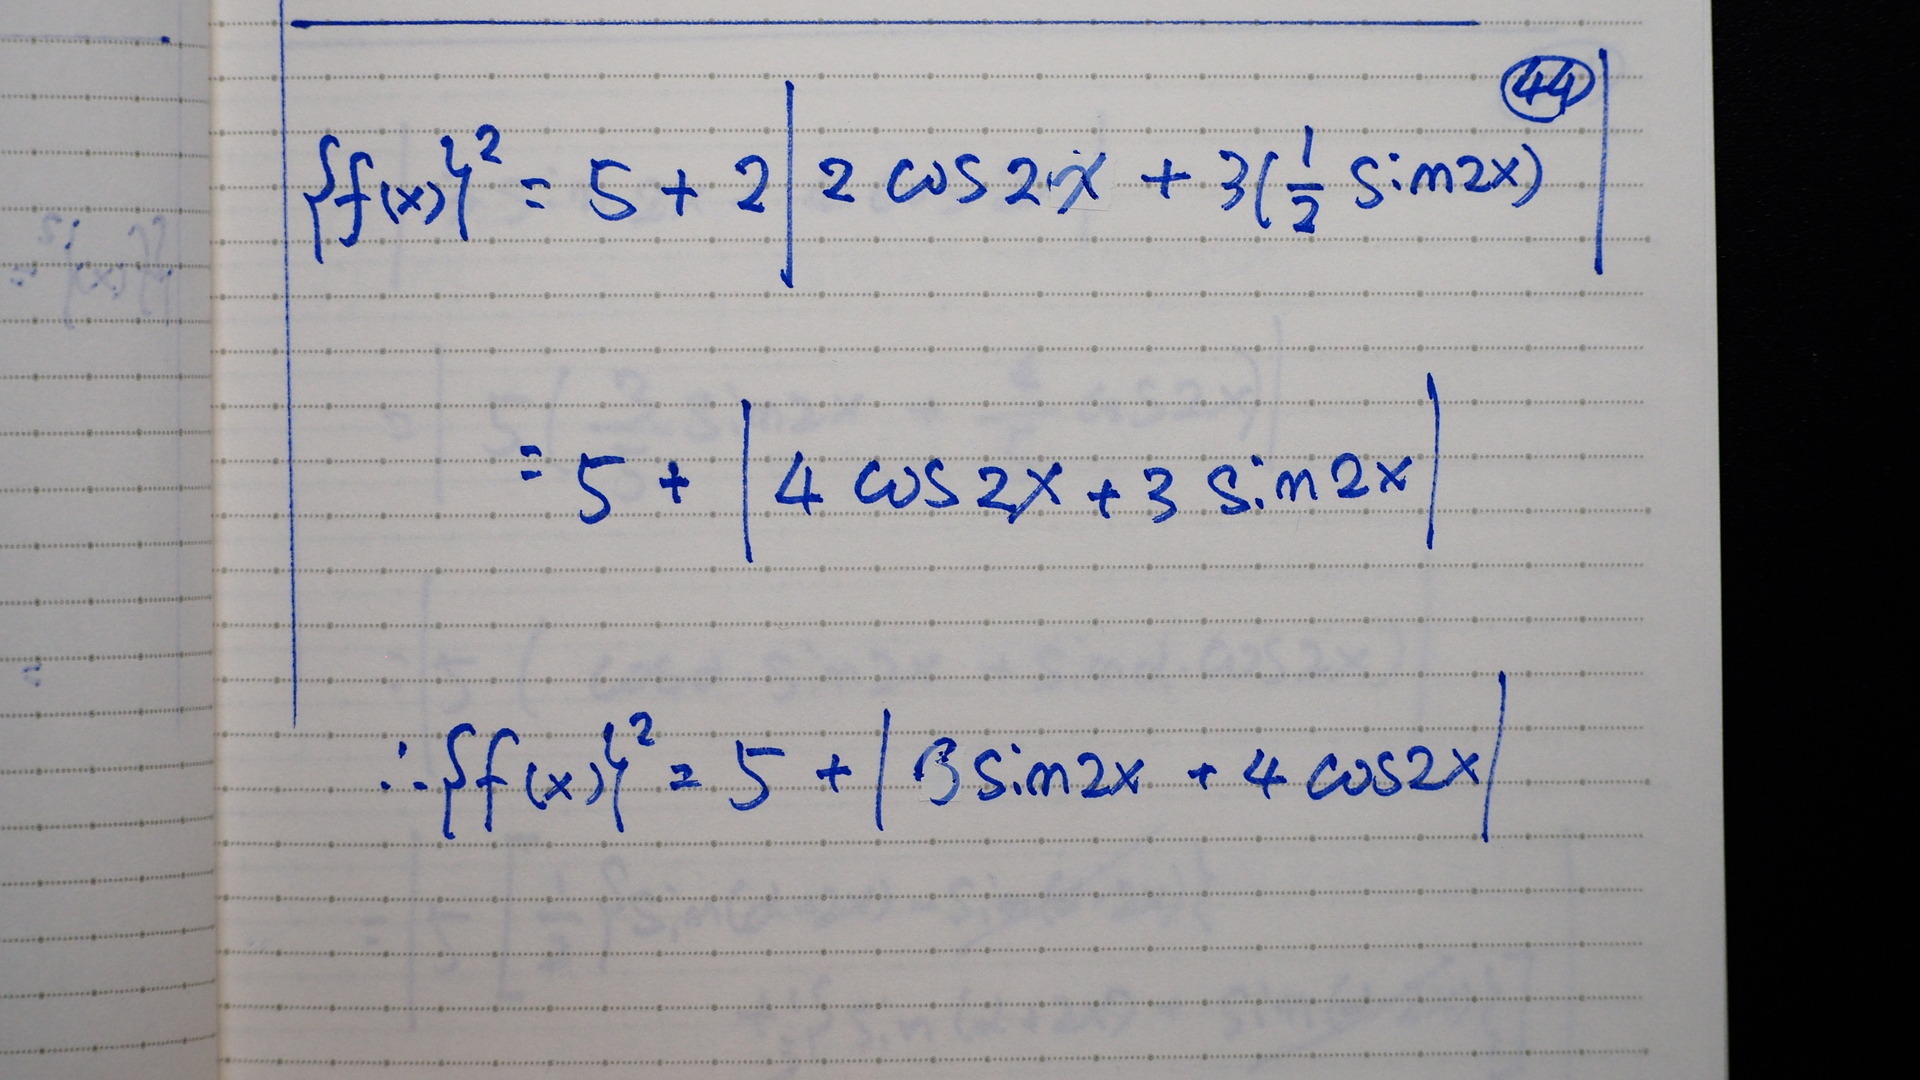 44
{f(x)}² = 5 + 2|2 cos2x + 3(1/2 sin2x)|
= 5 + |4 cos2x + 3 sin2x|
∴ {f(x)}² = 5 + |3 sin2x + 4 cos2x|